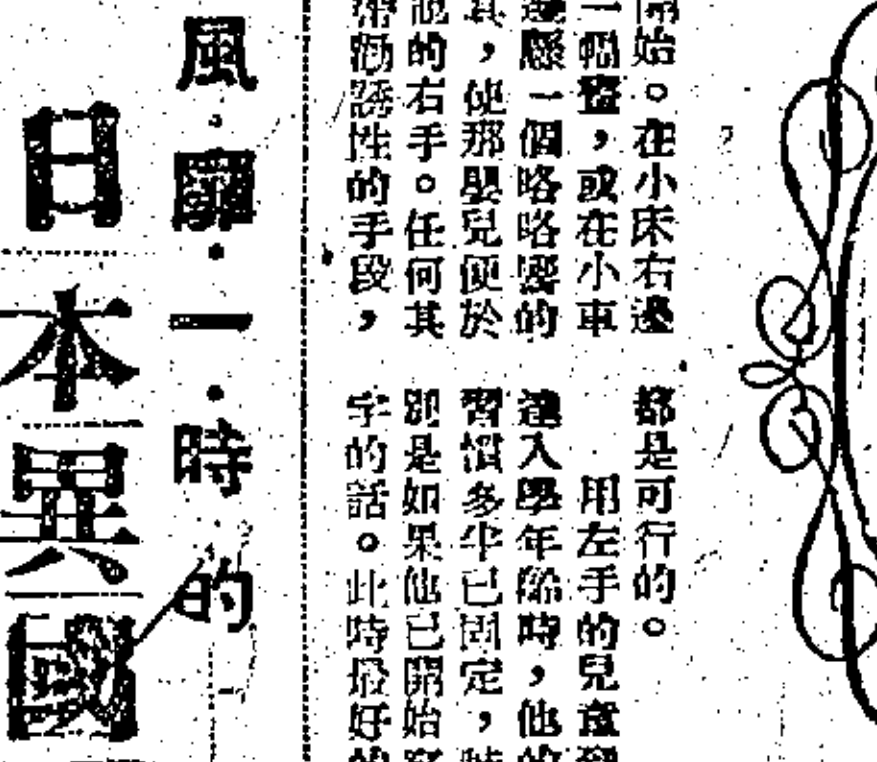 開始。在小床右邊
一個鐘，或在小車
邊懸一個略略響的
具，使那嬰兒便於
他的右手。任何其
帶勸誘性的手段，
都是可行的。
用左手的兒童
達入學年齡時，他的
習慣多半已固定，特
別是如果他已開始寫
字的話。此時最好的
風·靡·一·時的
日本異國